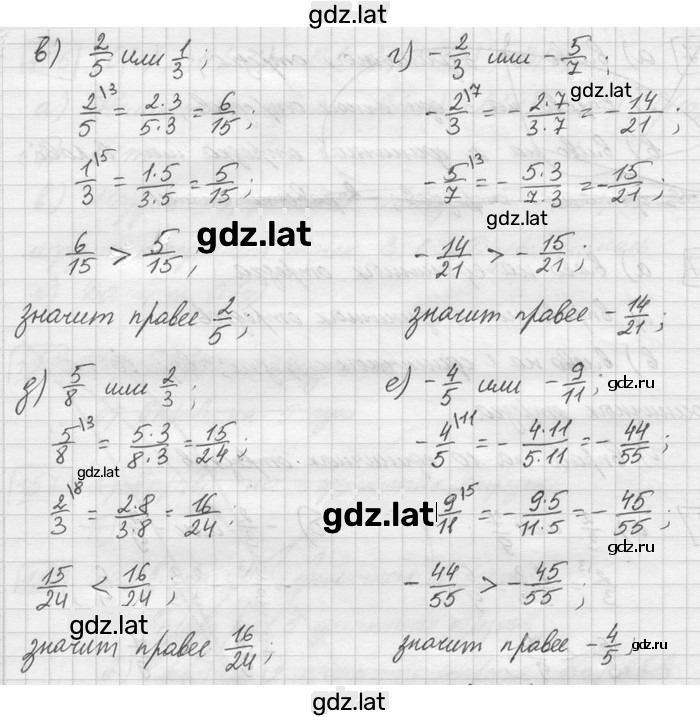 gdz.lat
в) 2/5 или 1/3 ;
2/5 \3 = 2·3/5·3 = 6/15 ;
1/3 \5 = 1·5/3·5 = 5/15 ;
6/15 > 5/15 ;
gdz.lat
значит правее 2/5 ;
г) - 2/3 или - 5/7 ;
gdz.lat
- 2/3 \7 = - 2·7/3·7 = - 14/21 ;
- 5/7 \3 = - 5·3/7·3 = - 15/21 ;
gdz.lat
- 14/21 > - 15/21 ;
значит правее - 14/21 ;
д) 5/8 или 2/3 ;
5/8 \3 = 5·3/8·3 = 15/24 ;
gdz.lat
2/3 \8 = 2·8/3·8 = 16/24 ;
15/24 < 16/24 ;
gdz.lat
значит правее 16/24 ;
е) - 4/5 или - 9/11 ;
gdz.lat
- 4/5 \11 = - 4·11/5·11 = - 44/55 ;
gdz.lat
9/11 \5 = - 9·5/11·5 = - 45/55 ;
gdz.lat
- 44/55 > - 45/55 ;
значит правее - 4/5 ;
gdz.lat
gdz.lat